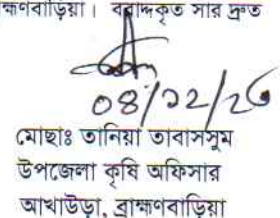 হ্মণবাড়িয়া। বরাদ্দকৃত সার দ্রুত
০৪/১২/২৫
মোছাঃ তানিয়া তাবাসসুম
উপজেলা কৃষি অফিসার
আখাউড়া, ব্রাহ্মণবাড়িয়া